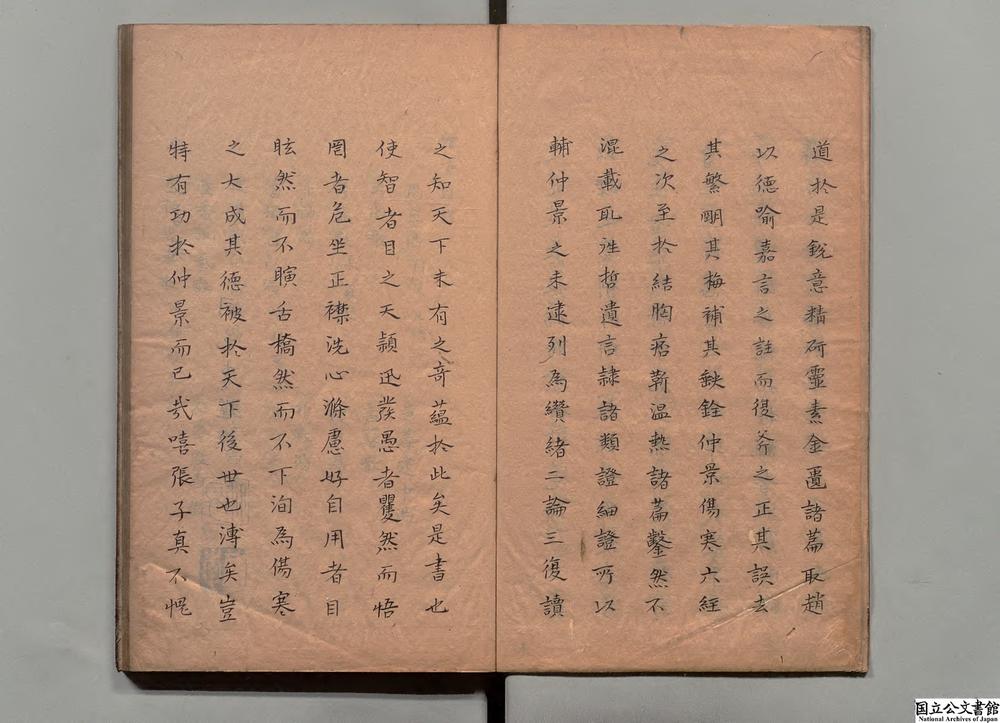 道於是銳意精研靈素金匱諸篇取趙
以德喻嘉言之註而復芥之正其誤去
其繁剛其悔補其缺銓仲景傷寒六經
之次至於結胸痞蘄溫熱諸篇鑿然不
混載取誰哲遺言隸諸類證細證所以
輔仲景之未逮列為纘緒二論三復讀
之知天下未有之奇蘊於此矣是書也
使智者目之天頴迅發愚者矍然而悟
罔者危坐正襟洗心滌慮好自用者目
眩然而不瞚舌撟然而不下洵為傷寒
之大成其德被於天下後世也溥矣豈
特有功於仲景而已哉嘻張子真不愧
国立公文書館
National Archives of Japan